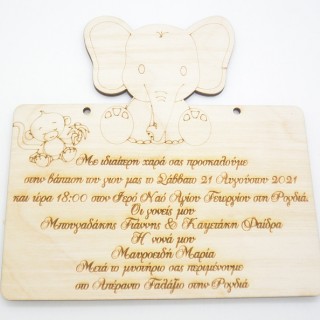 Με ιδιαίτερη χαρά σας προσκαλούμε
στην βάπτιση του γιου μας το Σάββατο 21 Αυγούστου 2021
και ώρα 18:00 στον Ιερό Ναό Αγίου Γεωργίου στη Ρογδιά.
Οι γονείς μου
Μπουχαδάκης Γιάννης & Καμετάκη Φαίδρα
Η νονά μου
Μαυροειδή Μαρία
Μετά το μυστήριο σας περιμένουμε
στο Απέραντο Γαλάζιο στην Ρογδιά